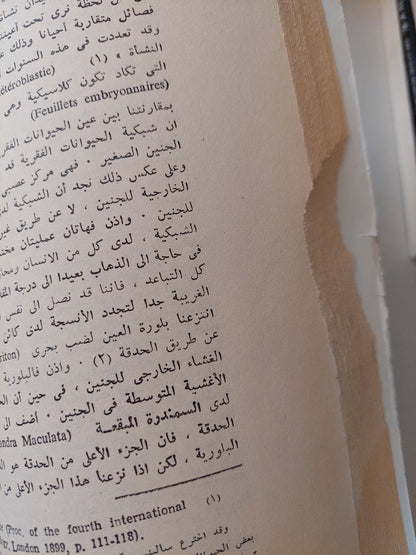 ل لحظة نرى تحت أعيننا
فصائل متقاربة أحيانا وذلك
وقد تعددت فى هذه السنوات
النشأة » (١) (étéroblastie)
التى تكاد تكون كلاسيكية وهى
(Feuillets embryonnaires)
بمقارنتنا بين عين الحيوانات الفقر
ان شبكية الحيوانات الفقرية قد
الجنين الصغير . فهى مركز عصبى
وعلى عكس ذلك نجد أن الشبكية لد
الخارجية للجنين ، لا عن طريق غير
للجنين . واذن فهاتان عمليتان مخت
الشبكية ، لدى كل من الانسان ومحا
فى حاجة الى الذهاب بعيدا الى درجة المقا
كل التباعد ، فاننا قد نصل الى نفس
الغريبة جدا لتجدد الأنسجة لدى كائن
انتزعنا بلورة العين لضب بحرى (riton
عن طريق الحدقة (٢) . واذن فالبلورية
الغشاء الخارجى للجنين ، فى حين أن الح
الأغشية المتوسطة فى الجنين . أضف الى
لدى السمندورة المبقعة (andra Maculata
الحدقة ، فان الجزء الأعلى من الحدقة هو ال
البلورية ، لكن اذا نزعنا هذا الجزء الأعلى من ال
(١)
e (Proc. of the fourth international
ogy, London 1899, p. 111-118).
وقد اخترع سالين
بعض الحيو